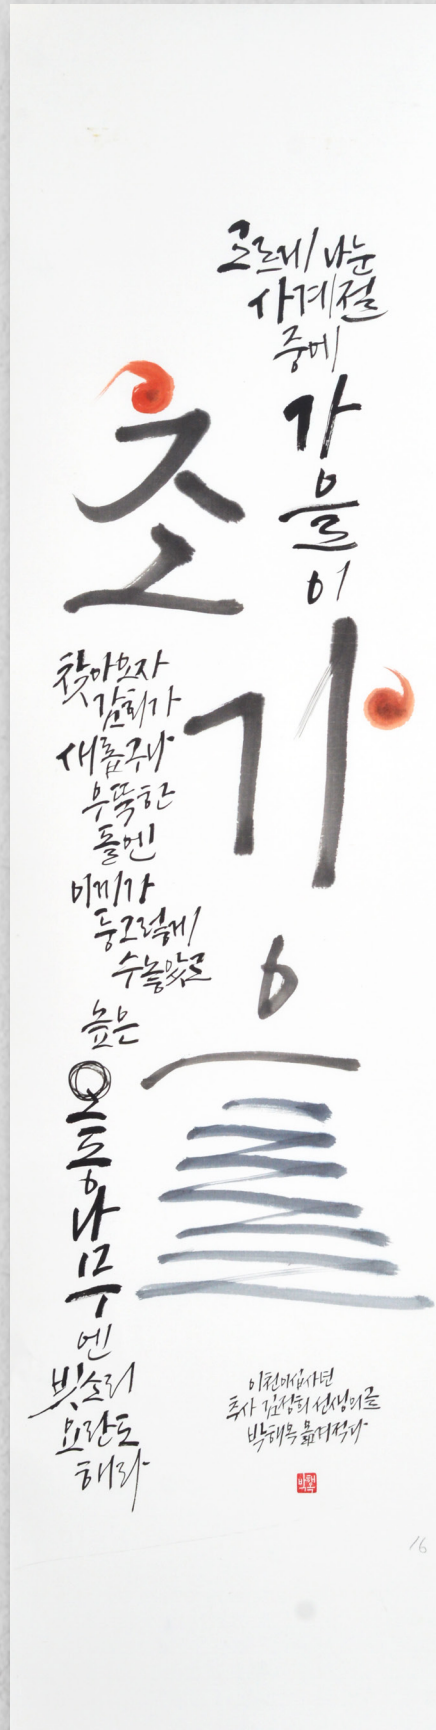 초
가
을
고르게 나눈
사계절
중에
가
을
이
찾아오자
감회가
새롭구나
우뚝한
돌엔
이끼가
둥그렇게
수놓았고
높은
오
동
나
무
엔
빗소리
요란도
해라
이천이십사년
추사 김정희 선생의글
박해옥 옮겨적다
박해옥
16